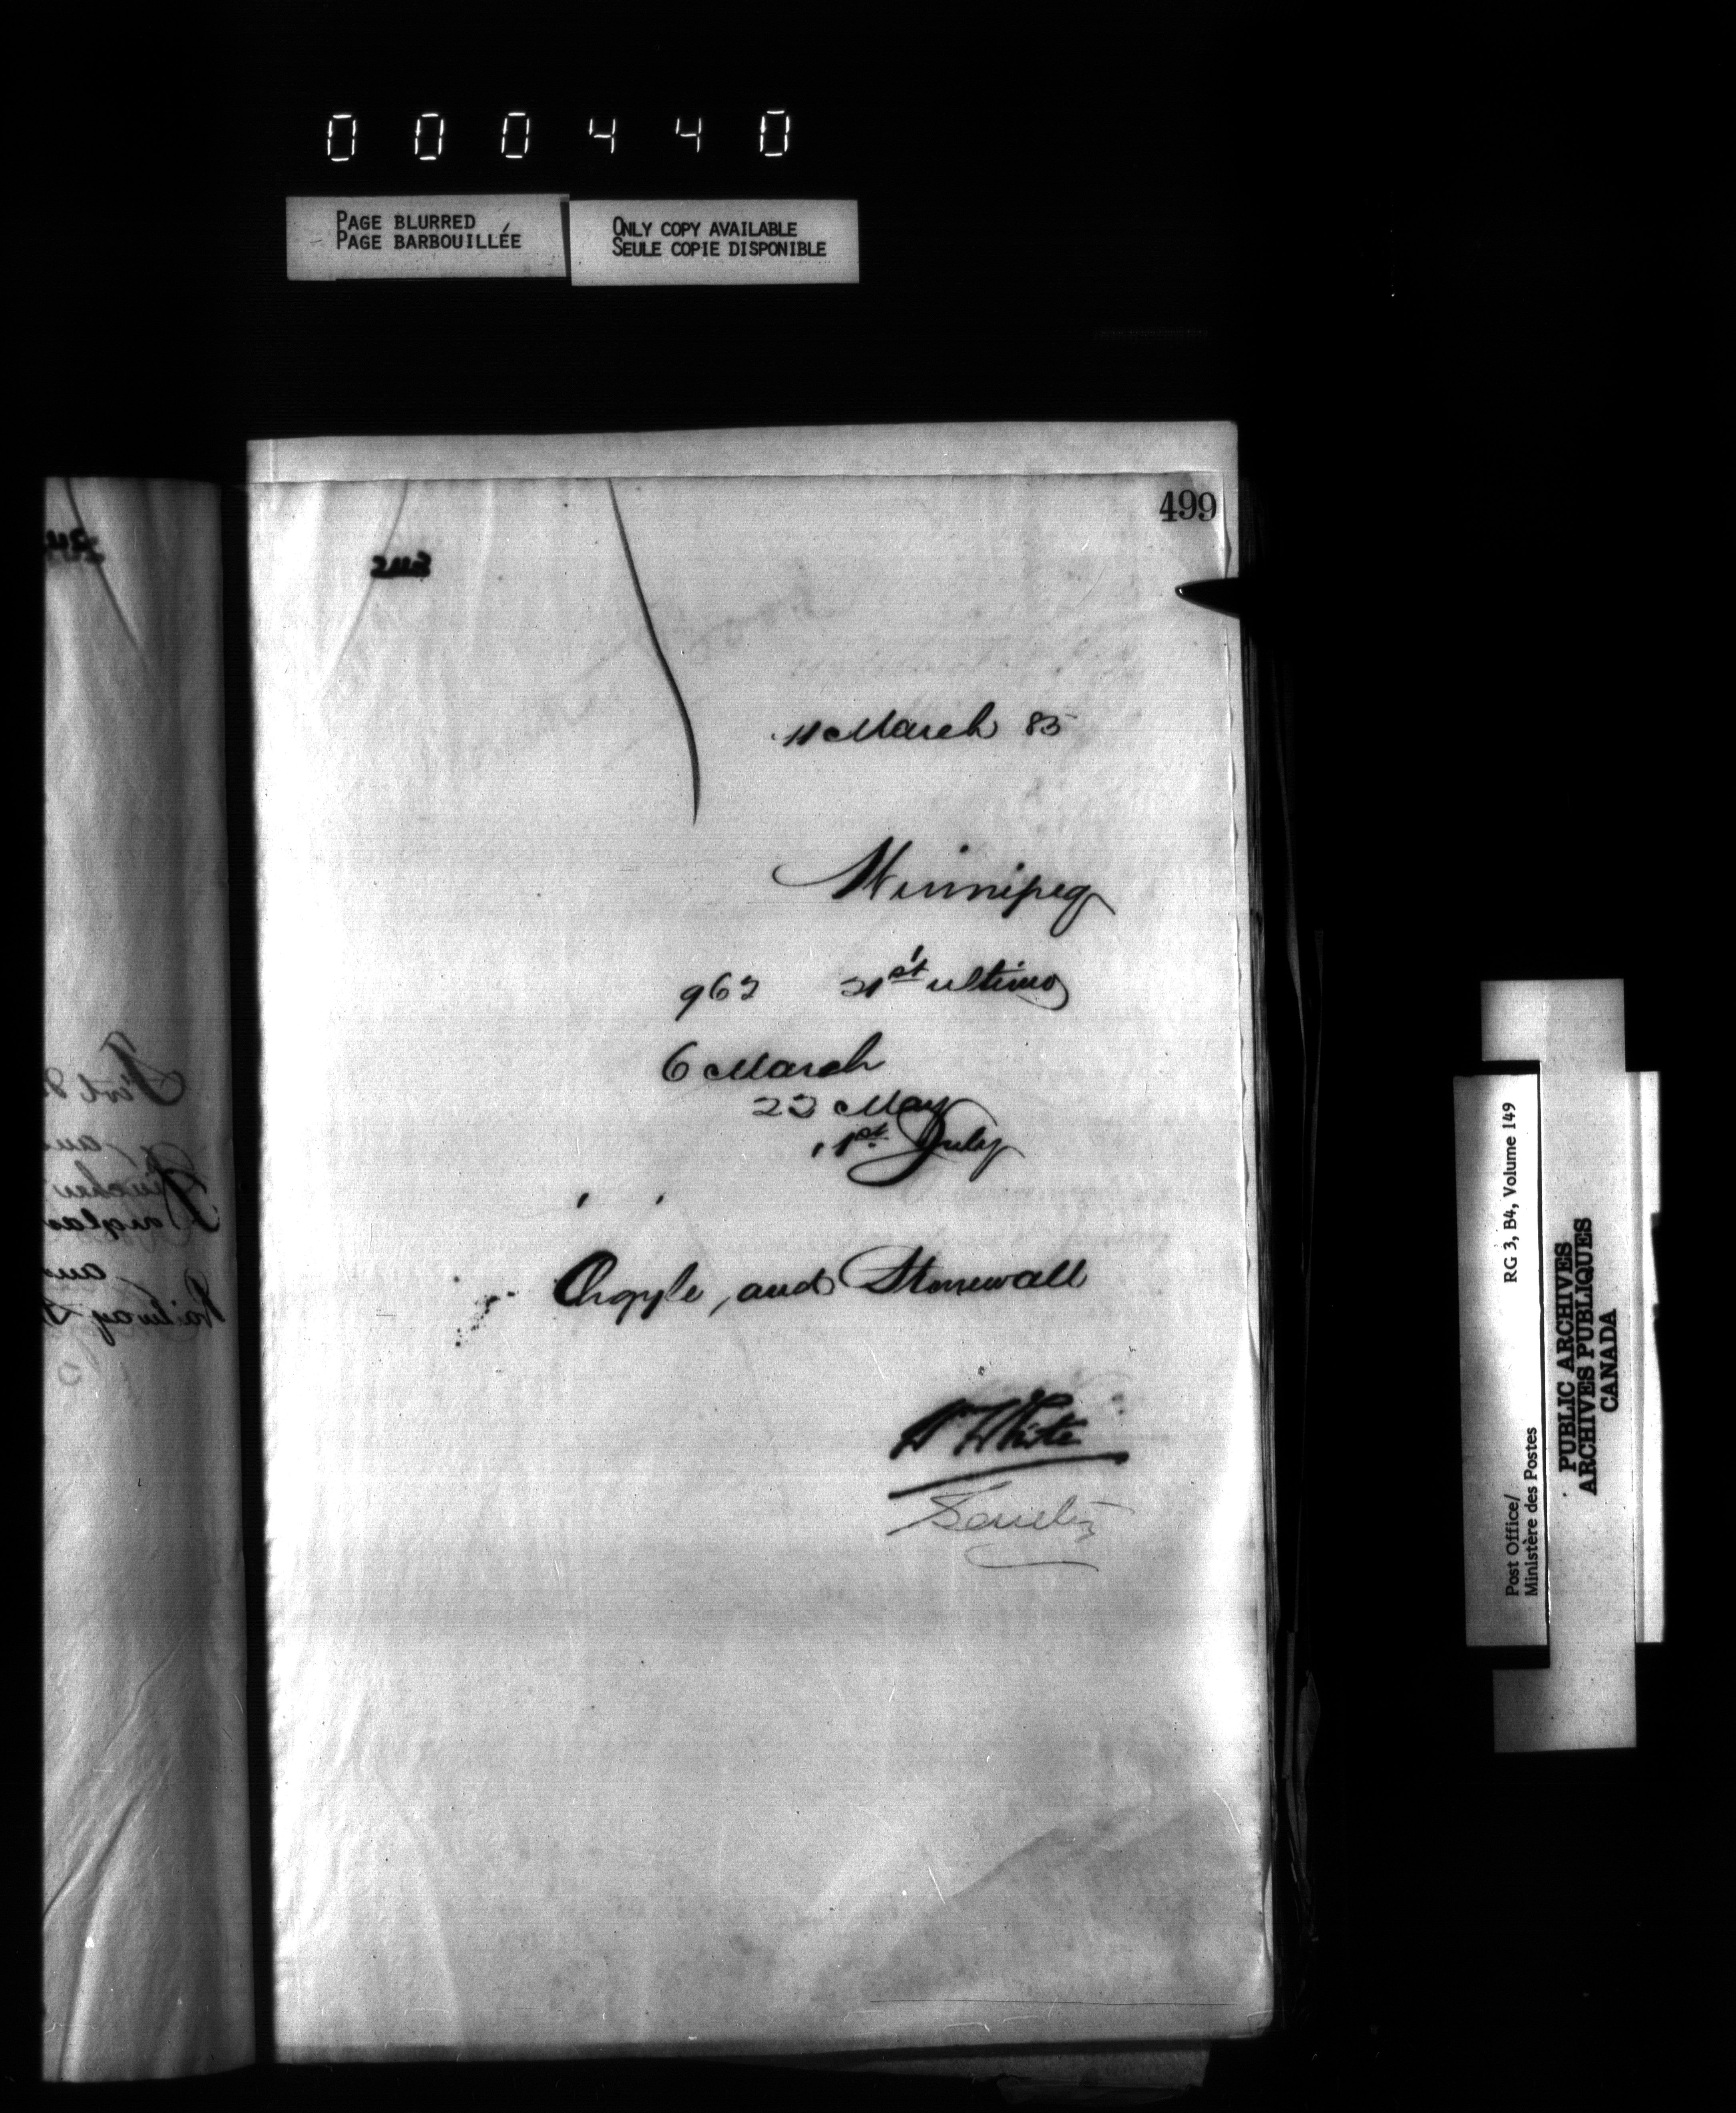 000440
PAGE BLURRED
PAGE BARBOUILLÉE
ONLY COPY AVAILABLE
SEULE COPIE DISPONIBLE
499
243
11 March 85
Winnipeg
967 21st ultimo
6 March
22 May
1st July
Argyle, and Stonewall
W White
RG 3, B4, Volume 149
Post Office/
Ministère des Postes
PUBLIC ARCHIVES
ARCHIVES PUBLIQUES
CANADA